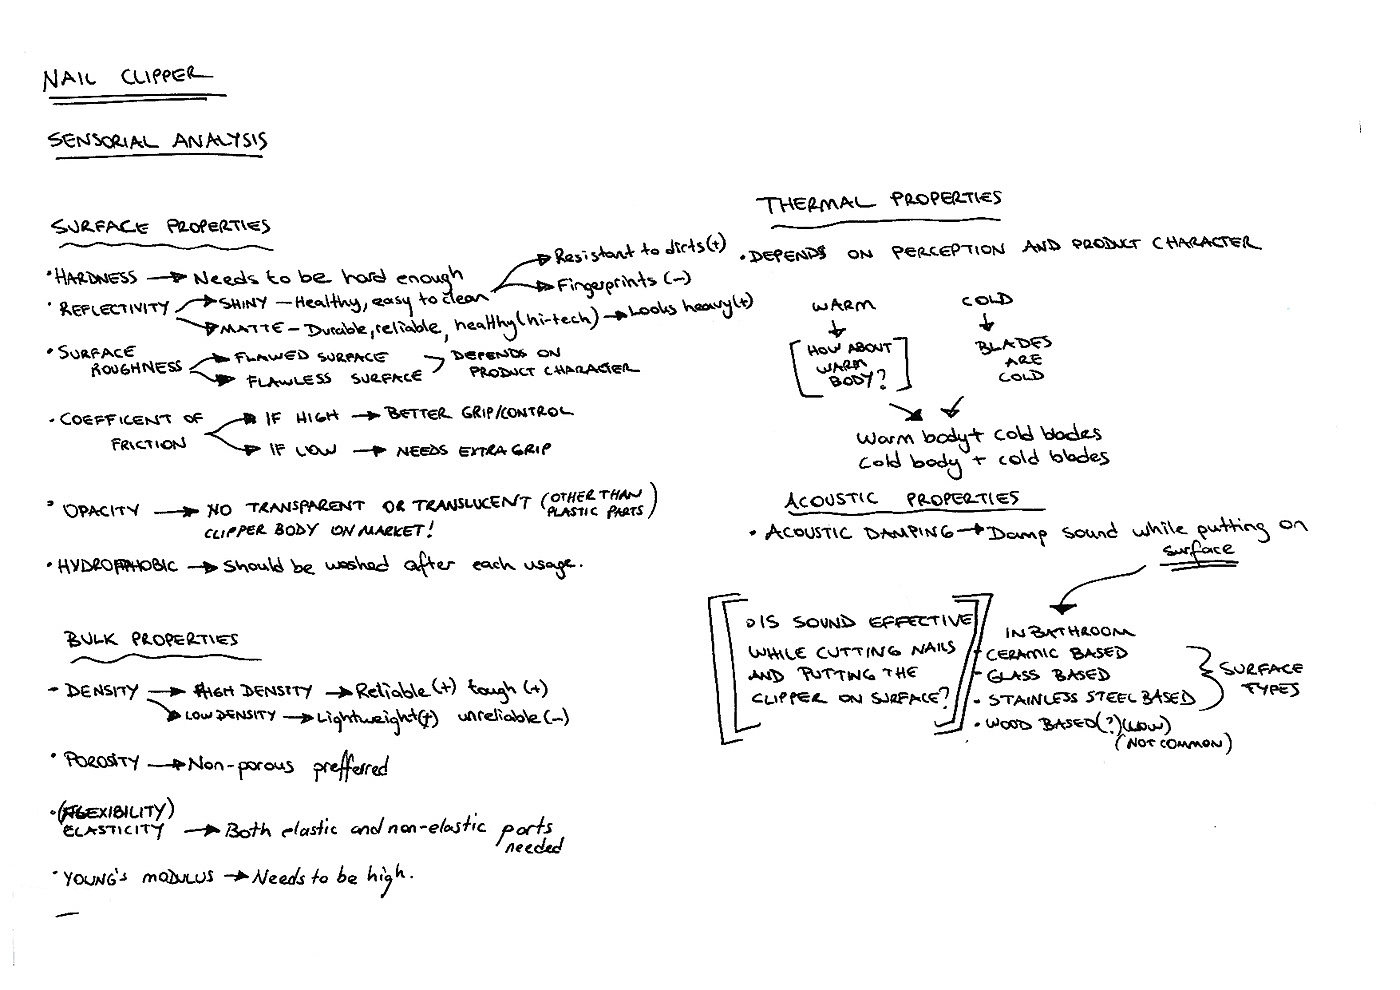 NAIL CLIPPER
SENSORIAL ANALYSIS
SURFACE PROPERTIES
• HARDNESS → Needs to be hard enough
• REFLECTIVITY → SHINY – Healthy, easy to clean → Resistant to dirts (+)
→ Fingerprints (–)
→ MATTE – Durable, reliable, healthy (hi-tech) → Looks heavy (+)
• SURFACE
ROUGHNESS → FLAWED SURFACE
→ FLAWLESS SURFACE
DEPENDS ON
PRODUCT CHARACTER
• COEFFICENT OF
FRICTION → IF HIGH → BETTER GRIP/CONTROL
→ IF LOW → NEEDS EXTRA GRIP
• OPACITY → NO TRANSPARENT OR TRANSLUCENT (OTHER THAN
PLASTIC PARTS)
CLIPPER BODY ON MARKET!
• HYDROPHOBIC → Should be washed after each usage.
BULK PROPERTIES
• DENSITY → HIGH DENSITY → Reliable (+) tough (+)
→ LOW DENSITY → Lightweight (+) unreliable (–)
• POROSITY → Non-porous preffered
• (FLEXIBILITY)
ELASTICITY → Both elastic and non-elastic parts
needed
• YOUNG'S MODULUS → Needs to be high.
–
THERMAL PROPERTIES
• DEPENDS ON PERCEPTION AND PRODUCT CHARACTER
WARM
[HOW ABOUT
WARM
BODY?]
COLD
BLADES
ARE
COLD
Warm body + cold blades
Cold body + cold blades
ACOUSTIC PROPERTIES
• ACOUSTIC DAMPING → Damp sound while putting on
surface
[◦ IS SOUND EFFECTIVE
WHILE CUTTING NAILS
AND PUTTING THE
CLIPPER ON SURFACE?]
IN BATHROOM
• CERAMIC BASED
• GLASS BASED
• STAINLESS STEEL BASED
• WOOD BASED (?) (LOW)
(NOT COMMON)
SURFACE
TYPES